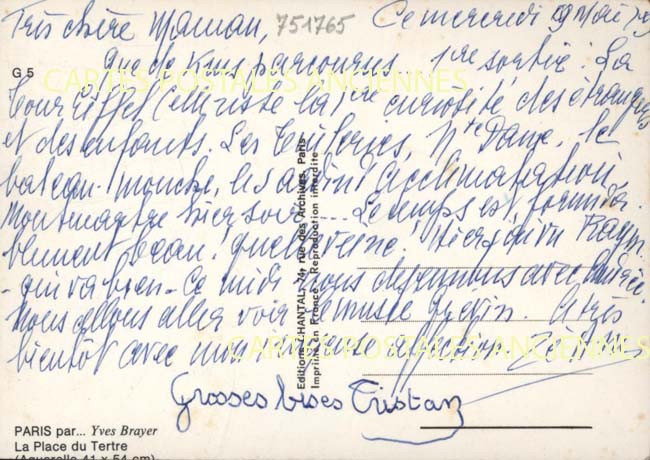 Très chère Maman, 751765 Ce mercredi 9 Mai 79
G 5
Que de Kms parcourus 1ère sortie. La
CARTES POSTALES ANCIENNES
Tour Eiffel (elle reste la) 1ère curiosité des étrangers
et des enfants. Les Tuileries, Ntre Dame, le
bateau-mouche, le Jardin d'acclimatation
Montmartre hier soir..... Le temps est formida-
blement beau. Quelle veine! Hier soir vu
qui va bien - Ce midi nous déjeunons avec
nous allons aller voir le musée Grévin. A très
bientôt avec mon immense affection
CARTES POSTALES ANCIENNES
Grosses bises Tristan
Editions CHANTAL, 74, rue des Archives, Paris
Imprimé en France - Reproduction interdite
PARIS par... Yves Brayer
La Place du Tertre
(Aquarelle 41 x 54 cm)